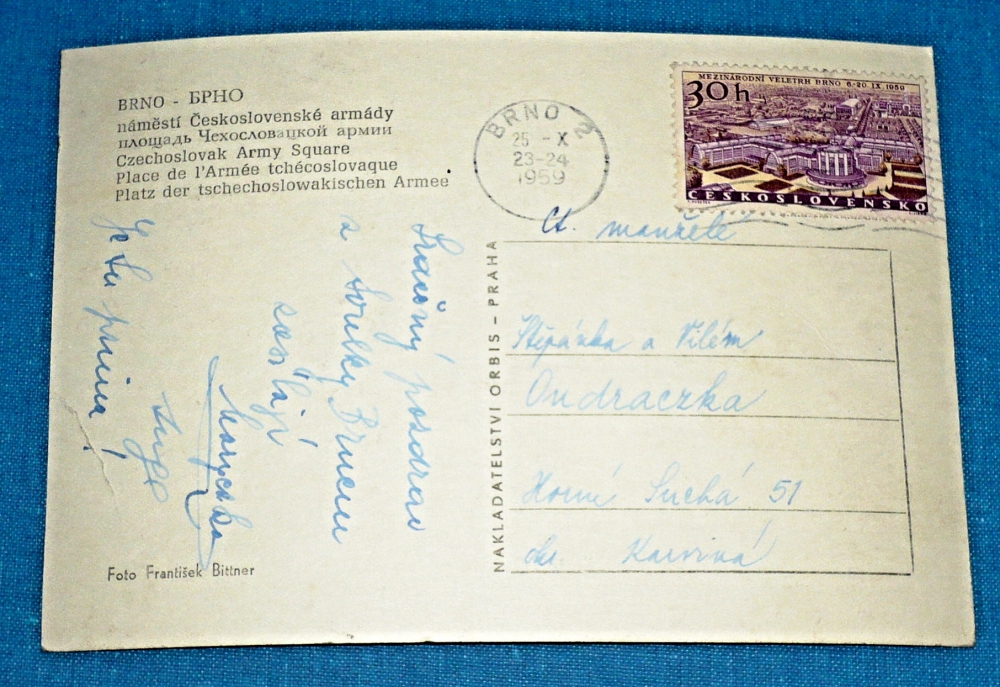 BRNO - БРНО
náměstí Československé armády
площадь Чехословацкой армии
Czechoslovak Army Square
Place de l'Armée tchécoslovaque
Platz der tschechoslowakischen Armee
BRNO 2
25 -X
23-24
1959
MEZINÁRODNÍ VELETRH BRNO 6-20 IX 1959
30 h
ČESKOSLOVENSKO
Srdečný pozdrav
z
Brna
zasílají
Je tu prima!
Foto František Bittner
NAKLADATELSTVÍ ORBIS - PRAHA
Ct. manželé
Štěpánka a Vilém
Ondraczka
Horní Suchá 51
okr. Karviná